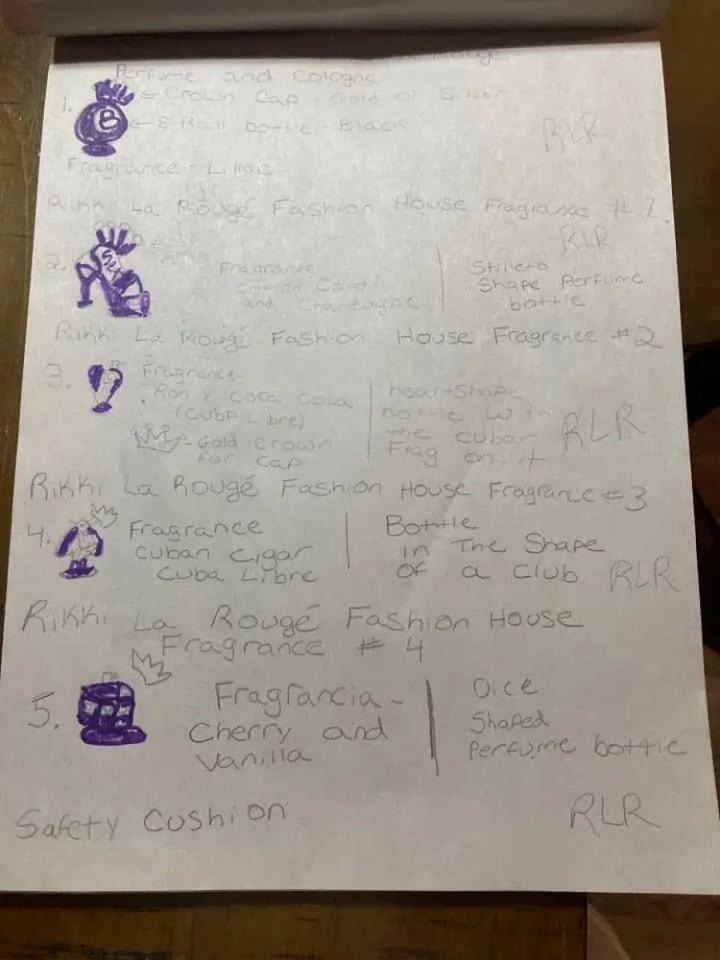 Perfume and Cologne
1. ← Crown Cap - Gold or Silver
B ← 8-Ball bottle - Black
RLR
Fragrance - Lilac
Rikki La Rougé Fashion House Fragrance # 1.
RLR
2. Fragrance
Cotton Candi
and Champagne
Stilleto
Shape Perfume
bottle
Rikki La Rougé Fashion House Fragrance #2
3. Fragrance
Ron & Coca Cola
(Cuba Libre)
- Gold Crown
for Cap
heart-Shape
bottle With
the Cuban
Flag on it
RLR
Rikki La Rougé Fashion House Fragrance #3
4. Fragrance
Cuban Cigar
Cuba Libre
Bottle
in The Shape
OF a Club
RLR
Rikki La Rougé Fashion House
Fragrance # 4
5. Fragrancia -
Cherry and
Vanilla
Dice
Shaped
Perfume bottle
Safety Cushion
RLR